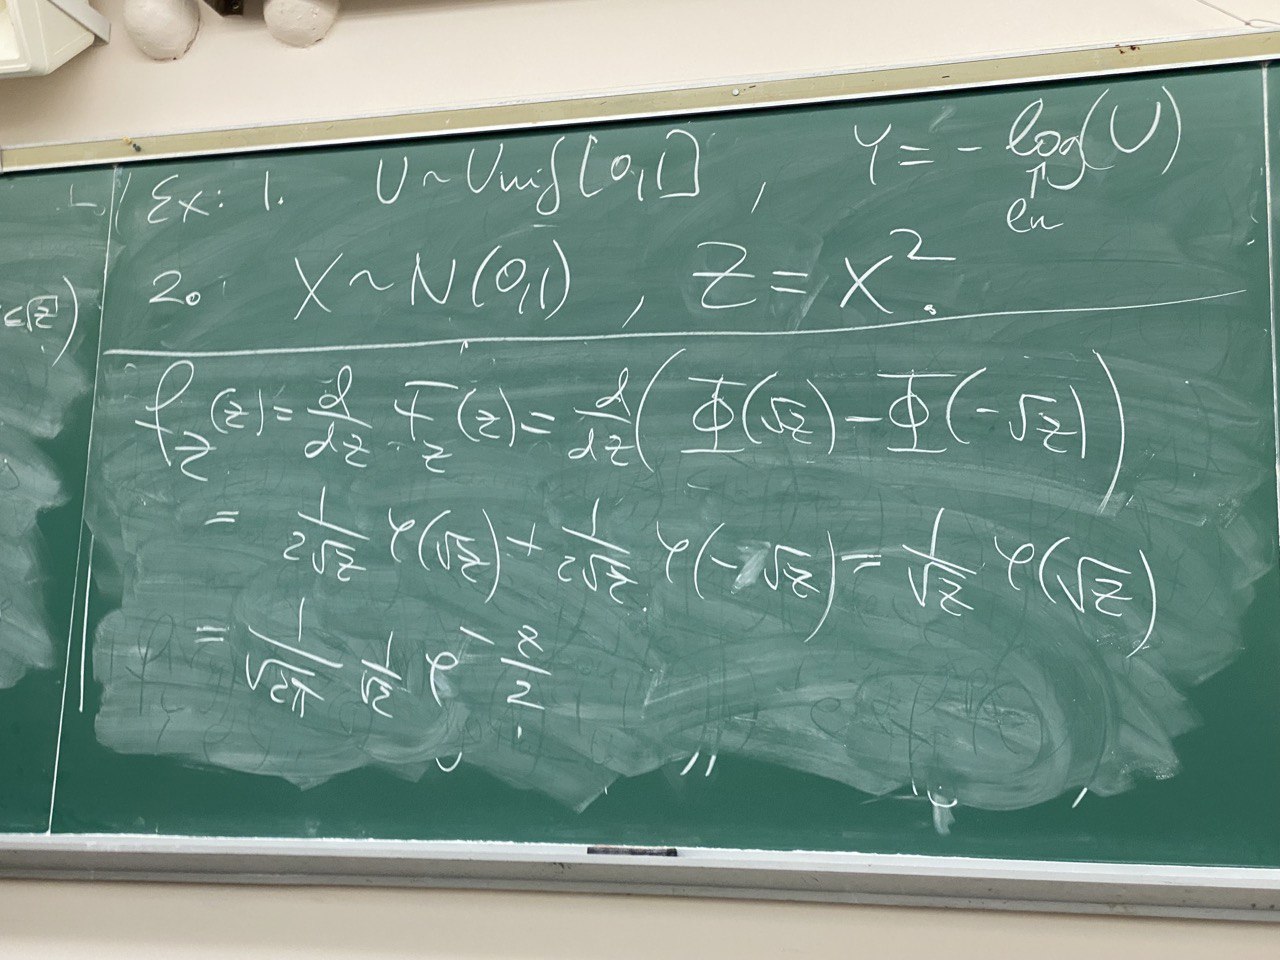 ≤√z)
Ex: 1. U ~ Unif [0,1] , Y = - log(U)
↑
ln
2. X ~ N(0,1) , Z = X².
f_Z(z) = d/dz F_Z(z) = d/dz (Φ(√z) - Φ(-√z))
= 1/(2√z) φ(√z) + 1/(2√z) φ(-√z) = 1/√z φ(√z)
= 1/√(2π) 1/√z e^(-z/2)